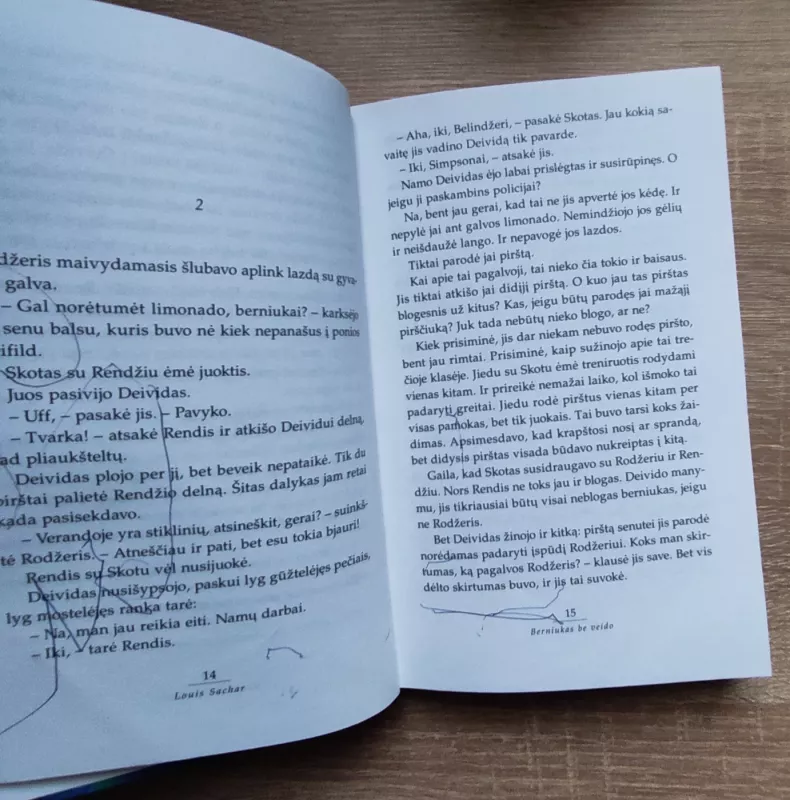 2
džeris maivydamasis šlubavo aplink lazdą su gyva-
galva.
– Gal norėtumėt limonado, berniukai? – karksėjo
senu balsu, kuris buvo nė kiek nepanašus į ponios
ifild.
Skotas su Rendžiu ėmė juoktis.
Juos pasivijo Deividas.
– Uff, – pasakė jis. – Pavyko.
– Tvarka! – atsakė Rendis ir atkišo Deividui delną,
ad pliaukšteltų.
Deividas plojo per jį, bet beveik nepataikė. Tik du
pirštai palietė Rendžio delną. Šitas dalykas jam retai
kada pasisekdavo.
– Verandoje yra stiklinių, atsineškit, gerai? – suinkš-
tė Rodžeris. – Atneščiau ir pati, bet esu tokia bjauri!
Rendis su Skotu vėl nusijuokė.
Deividas nusišypsojo, paskui lyg gūžtelėjęs pečiais,
lyg mostelėjęs ranka tarė:
– Na, man jau reikia eiti. Namų darbai.
– Iki, – tarė Rendis.
14
Louis Sachar
– Aha, iki, Belindžeri, – pasakė Skotas. Jau kokią sa-
vaitę jis vadino Deividą tik pavarde.
– Iki, Simpsonai, – atsakė jis.
Namo Deividas ėjo labai prislėgtas ir susirūpinęs. O
jeigu ji paskambins policijai?
Na, bent jau gerai, kad tai ne jis apvertė jos kėdę. Ir
nepylė jai ant galvos limonado. Nemindžiojo jos gėlių
ir neišdaužė lango. Ir nepavogė jos lazdos.
Tiktai parodė jai pirštą.
Kai apie tai pagalvoji, tai nieko čia tokio ir baisaus.
Jis tiktai atkišo jai didįjį pirštą. O kuo jau tas pirštas
blogesnis už kitus? Kas, jeigu būtų parodęs jai mažąjį
pirščiuką? Juk tada nebūtų nieko blogo, ar ne?
Kiek prisiminė, jis dar niekam nebuvo rodęs piršto,
bent jau rimtai. Prisiminė, kaip sužinojo apie tai tre-
čioje klasėje. Jiedu su Skotu ėmė treniruotis rodydami
vienas kitam. Ir prireikė nemažai laiko, kol išmoko tai
padaryti greitai. Jiedu rodė pirštus vienas kitam per
visas pamokas, bet tik juokais. Tai buvo tarsi koks žai-
dimas. Apsimesdavo, kad krapštosi nosį ar sprandą,
bet didysis pirštas visada būdavo nukreiptas į kitą.
Gaila, kad Skotas susidraugavo su Rodžeriu ir Ren-
džiu. Nors Rendis ne toks jau ir blogas. Deivido many-
mu, jis tikriausiai būtų visai neblogas berniukas, jeigu
ne Rodžeris.
Bet Deividas žinojo ir kitką: pirštą senutei jis parodė
norėdamas padaryti įspūdį Rodžeriui. Koks man skir-
tumas, ką pagalvos Rodžeris? – klausė jis save. Bet vis
dėlto skirtumas buvo, ir jis tai suvokė.
15
Berniukas be veido